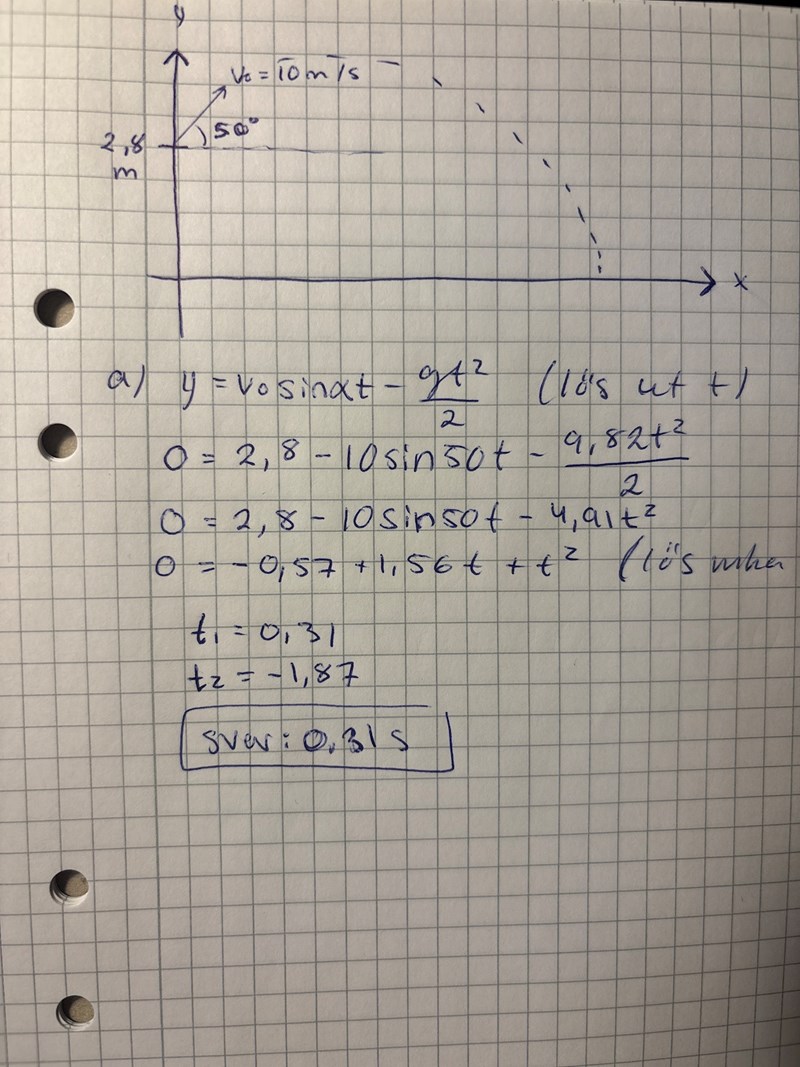 y
v₀ = 10 m/s
50°
2,8
m
x
a) y = v₀ sinαt - gt²/2 (lös ut t)
0 = 2,8 - 10 sin 50t - 9,82t²/2
0 = 2,8 - 10 sin 50t - 4,91t²
0 = -0,57 + 1,56t + t² (lös mha
t₁ = 0,31
t₂ = -1,87
svar: 0,31 s